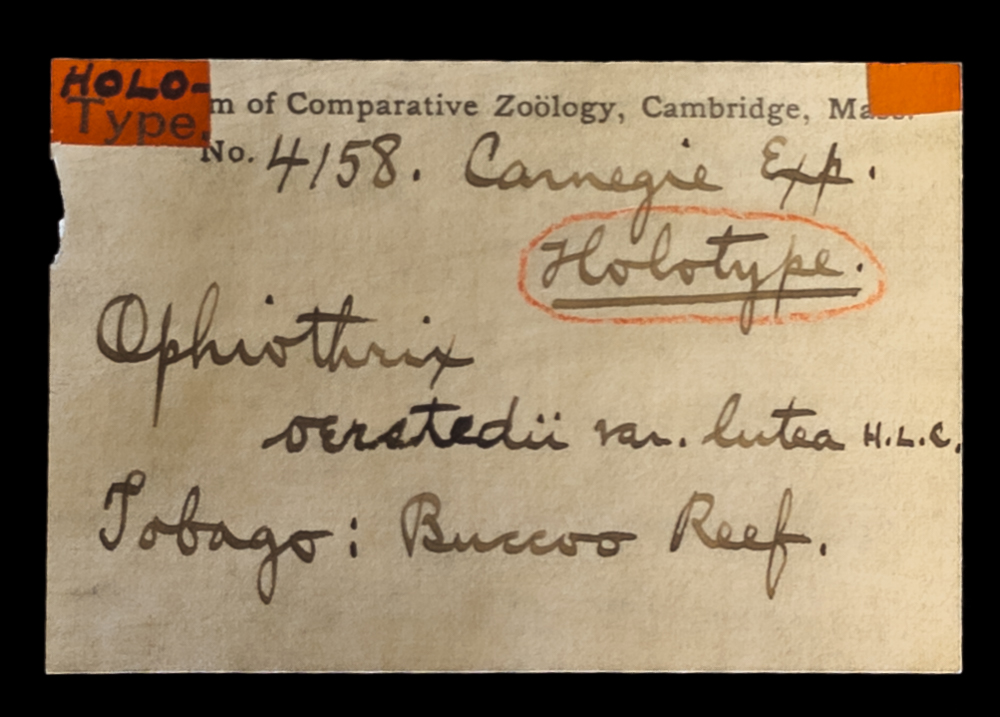 HOLO-
Type.
m of Comparative Zoölogy, Cambridge, Mass.
No. 4158. Carnegie Exp.
Holotype.
Ophiothrix
oerstedii var. lutea H.L.C.
Tobago: Buccoo Reef.